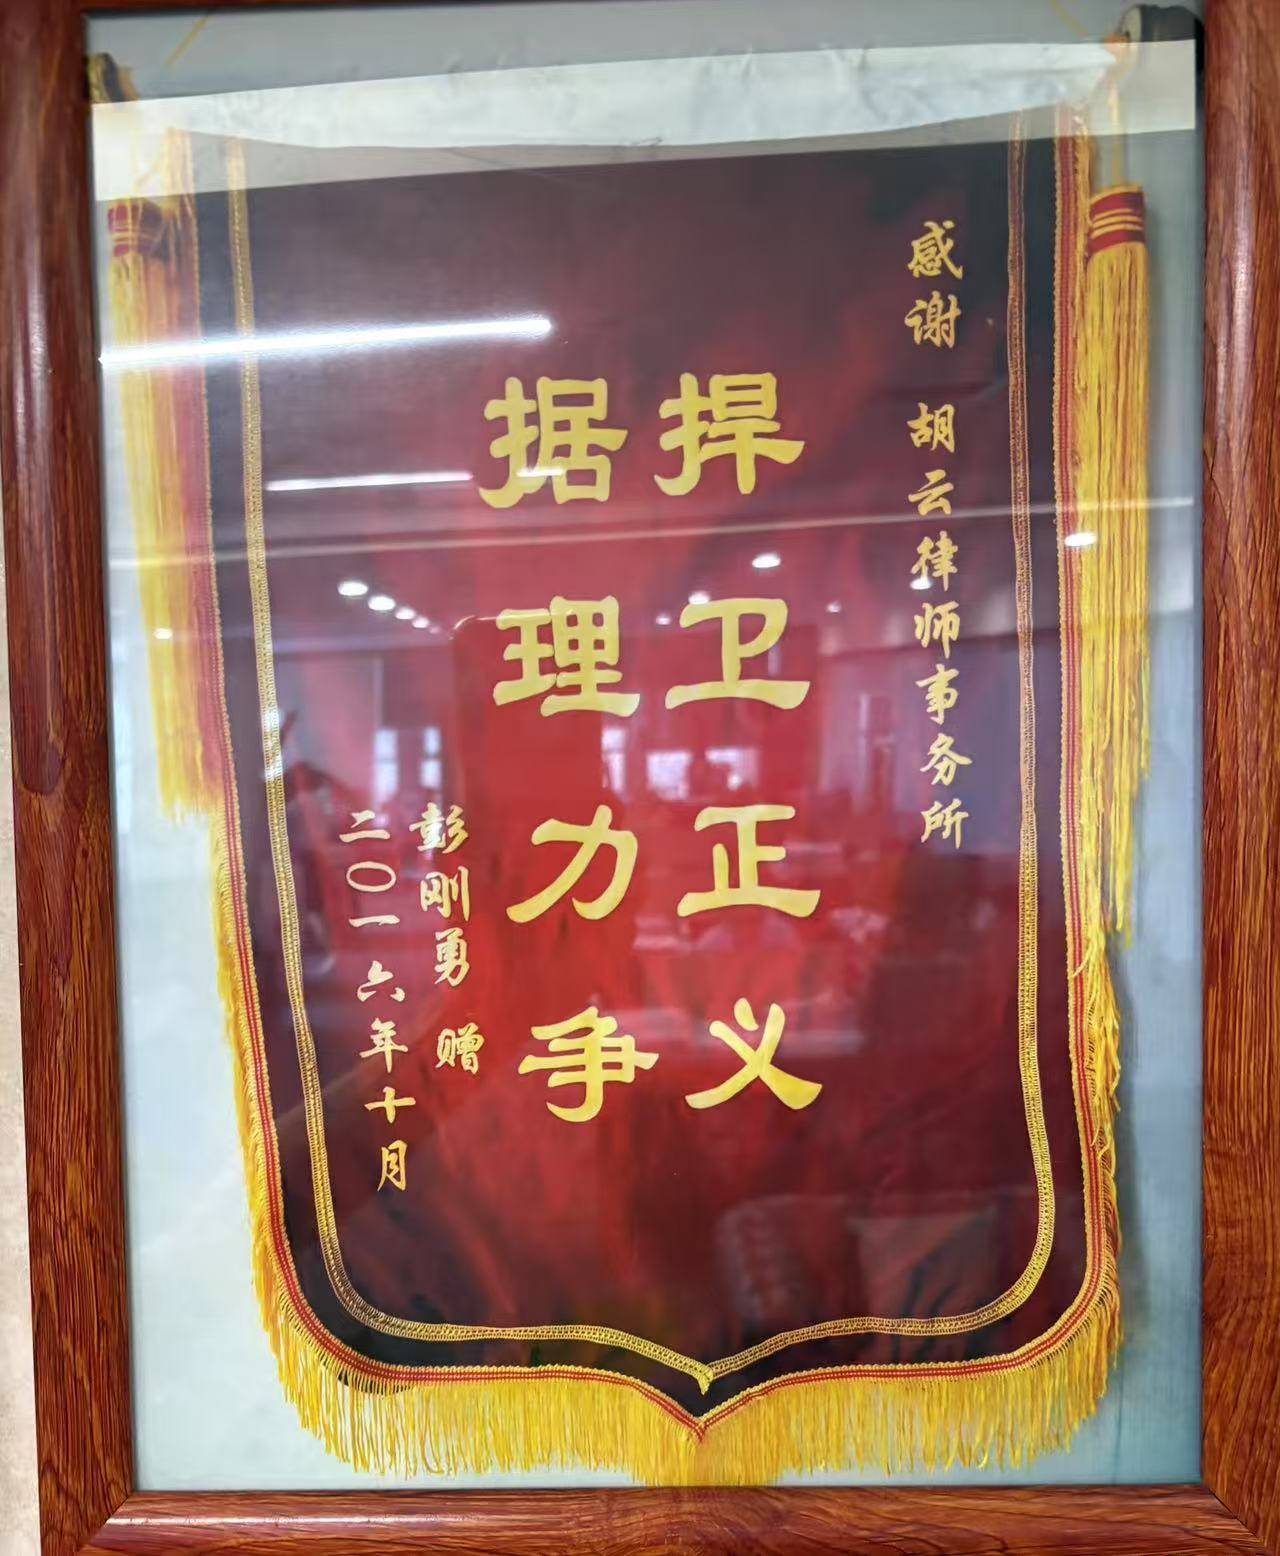 感谢 胡云律师事务所
捍卫正义
据理力争
彭刚勇 赠
二〇一六年十月